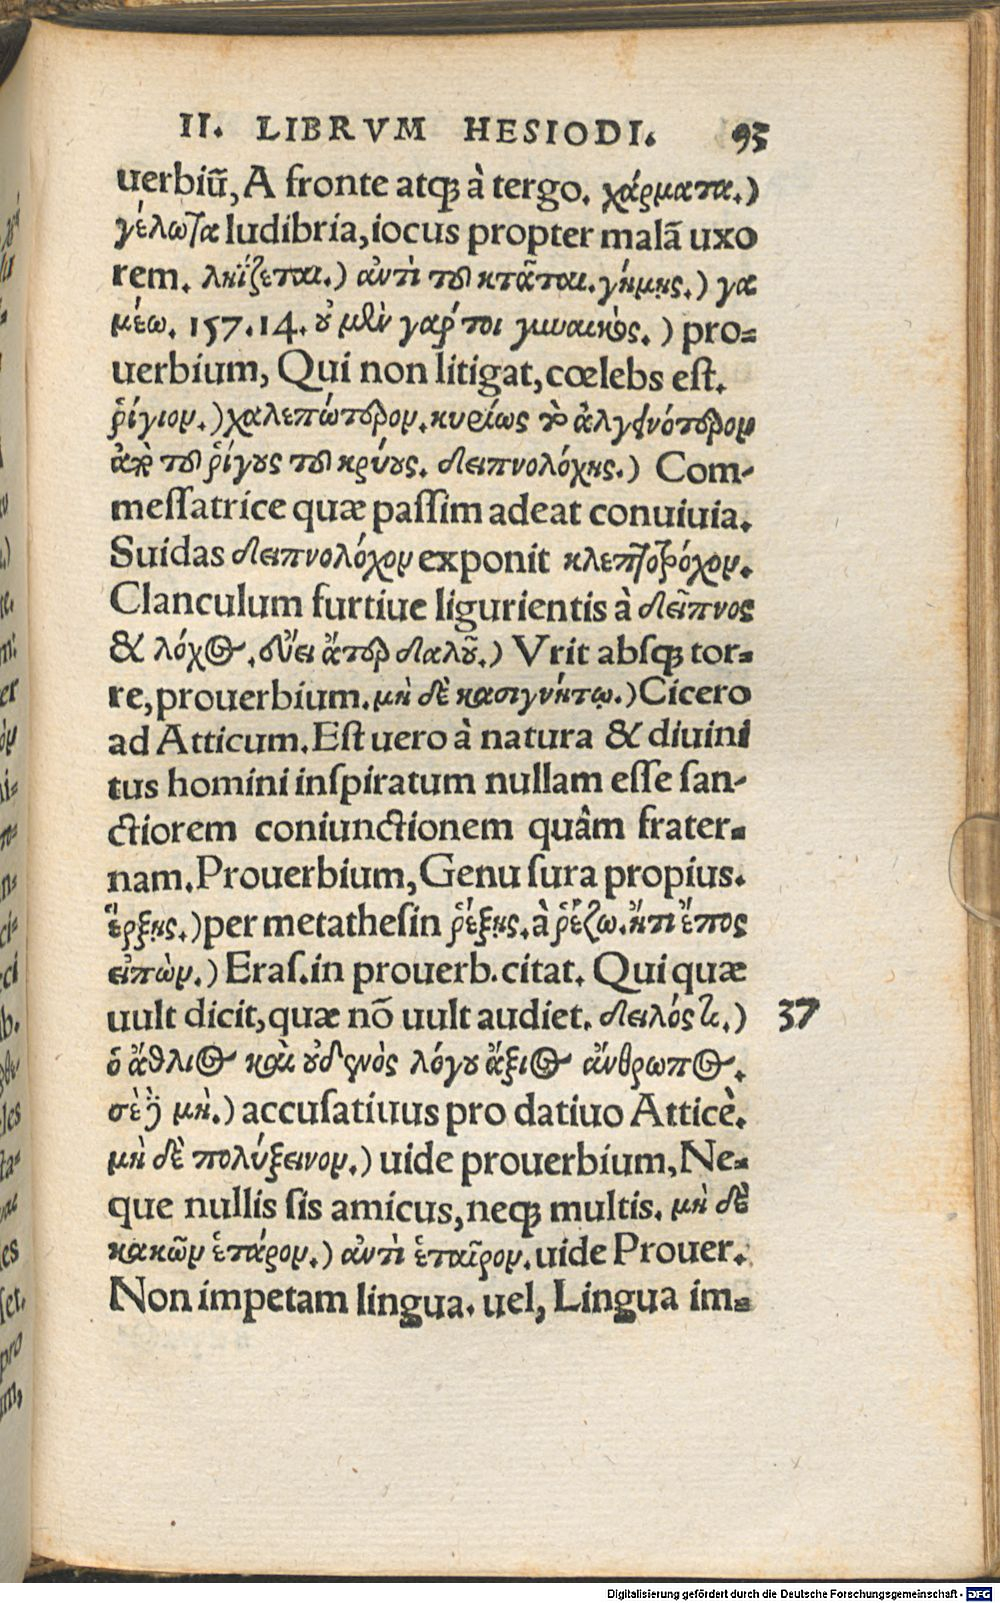 II. LIBRVM HESIODI. 95
uerbiũ, A fronte atq̃ à tergo. χάρματα.)
γέλωτα ludibria, iocus propter malã uxo
rem. ληΐζεται.) ἀντὶ τοῦ κτᾶται. γήμῃς.) γα
μέω. 157.14. οὐ μὲν γάρ τοι γυναικὸς.) pro=
uerbium, Qui non litigat, cœlebs eſt.
ῥίγιον.) χαλεπώτερον. κυρίως τὸ ἀλγεινότερον
ἀπὸ τοῦ ῥίγους τοῦ κρύους. δειπνολόχης.) Com-
meſſatrice quæ paſſim adeat conuiuia.
Suidas δειπνολόχον exponit κλεπτοτρόχον.
Clanculum furtiue ligurientis à δεῖπνος
& λόχος. εὕει ἄτερ δαλοῦ.) Vrit abſq̃ tor=
re, prouerbium. μὴ δὲ κασιγνήτῳ.) Cicero
ad Atticum. Eſt uero à natura & diuini
tus homini inſpiratum nullam eſſe ſan-
ctiorem coniunctionem quâm frater=
nam. Prouerbium, Genu ſura propius.
ἔρξῃς.) per metatheſin ῥέξῃς. à ῥέζω. ἤ τι ἔπος
εἰπὼν.) Eraſ. in prouerb. citat. Qui quæ
uult dicit, quæ nõ uult audiet. δειλός τε.) 37
ὁ ἄθλιος καὶ οὐδενὸς λόγου ἄξιος ἄνθρωπος.
σὲ δὲ μὴ.) accuſatiuus pro datiuo Atticè.
μὴ δὲ πολύξεινον.) uide prouerbium, Ne=
que nullis ſis amicus, neq̃ multis. μὴ δὲ
κακῶν ἑτάρον.) ἀντὶ ἑταῖρον. uide Prouer.
Non impetam lingua. uel, Lingua im=
Digitalisierung gefördert durch die Deutsche Forschungsgemeinschaft - DFG